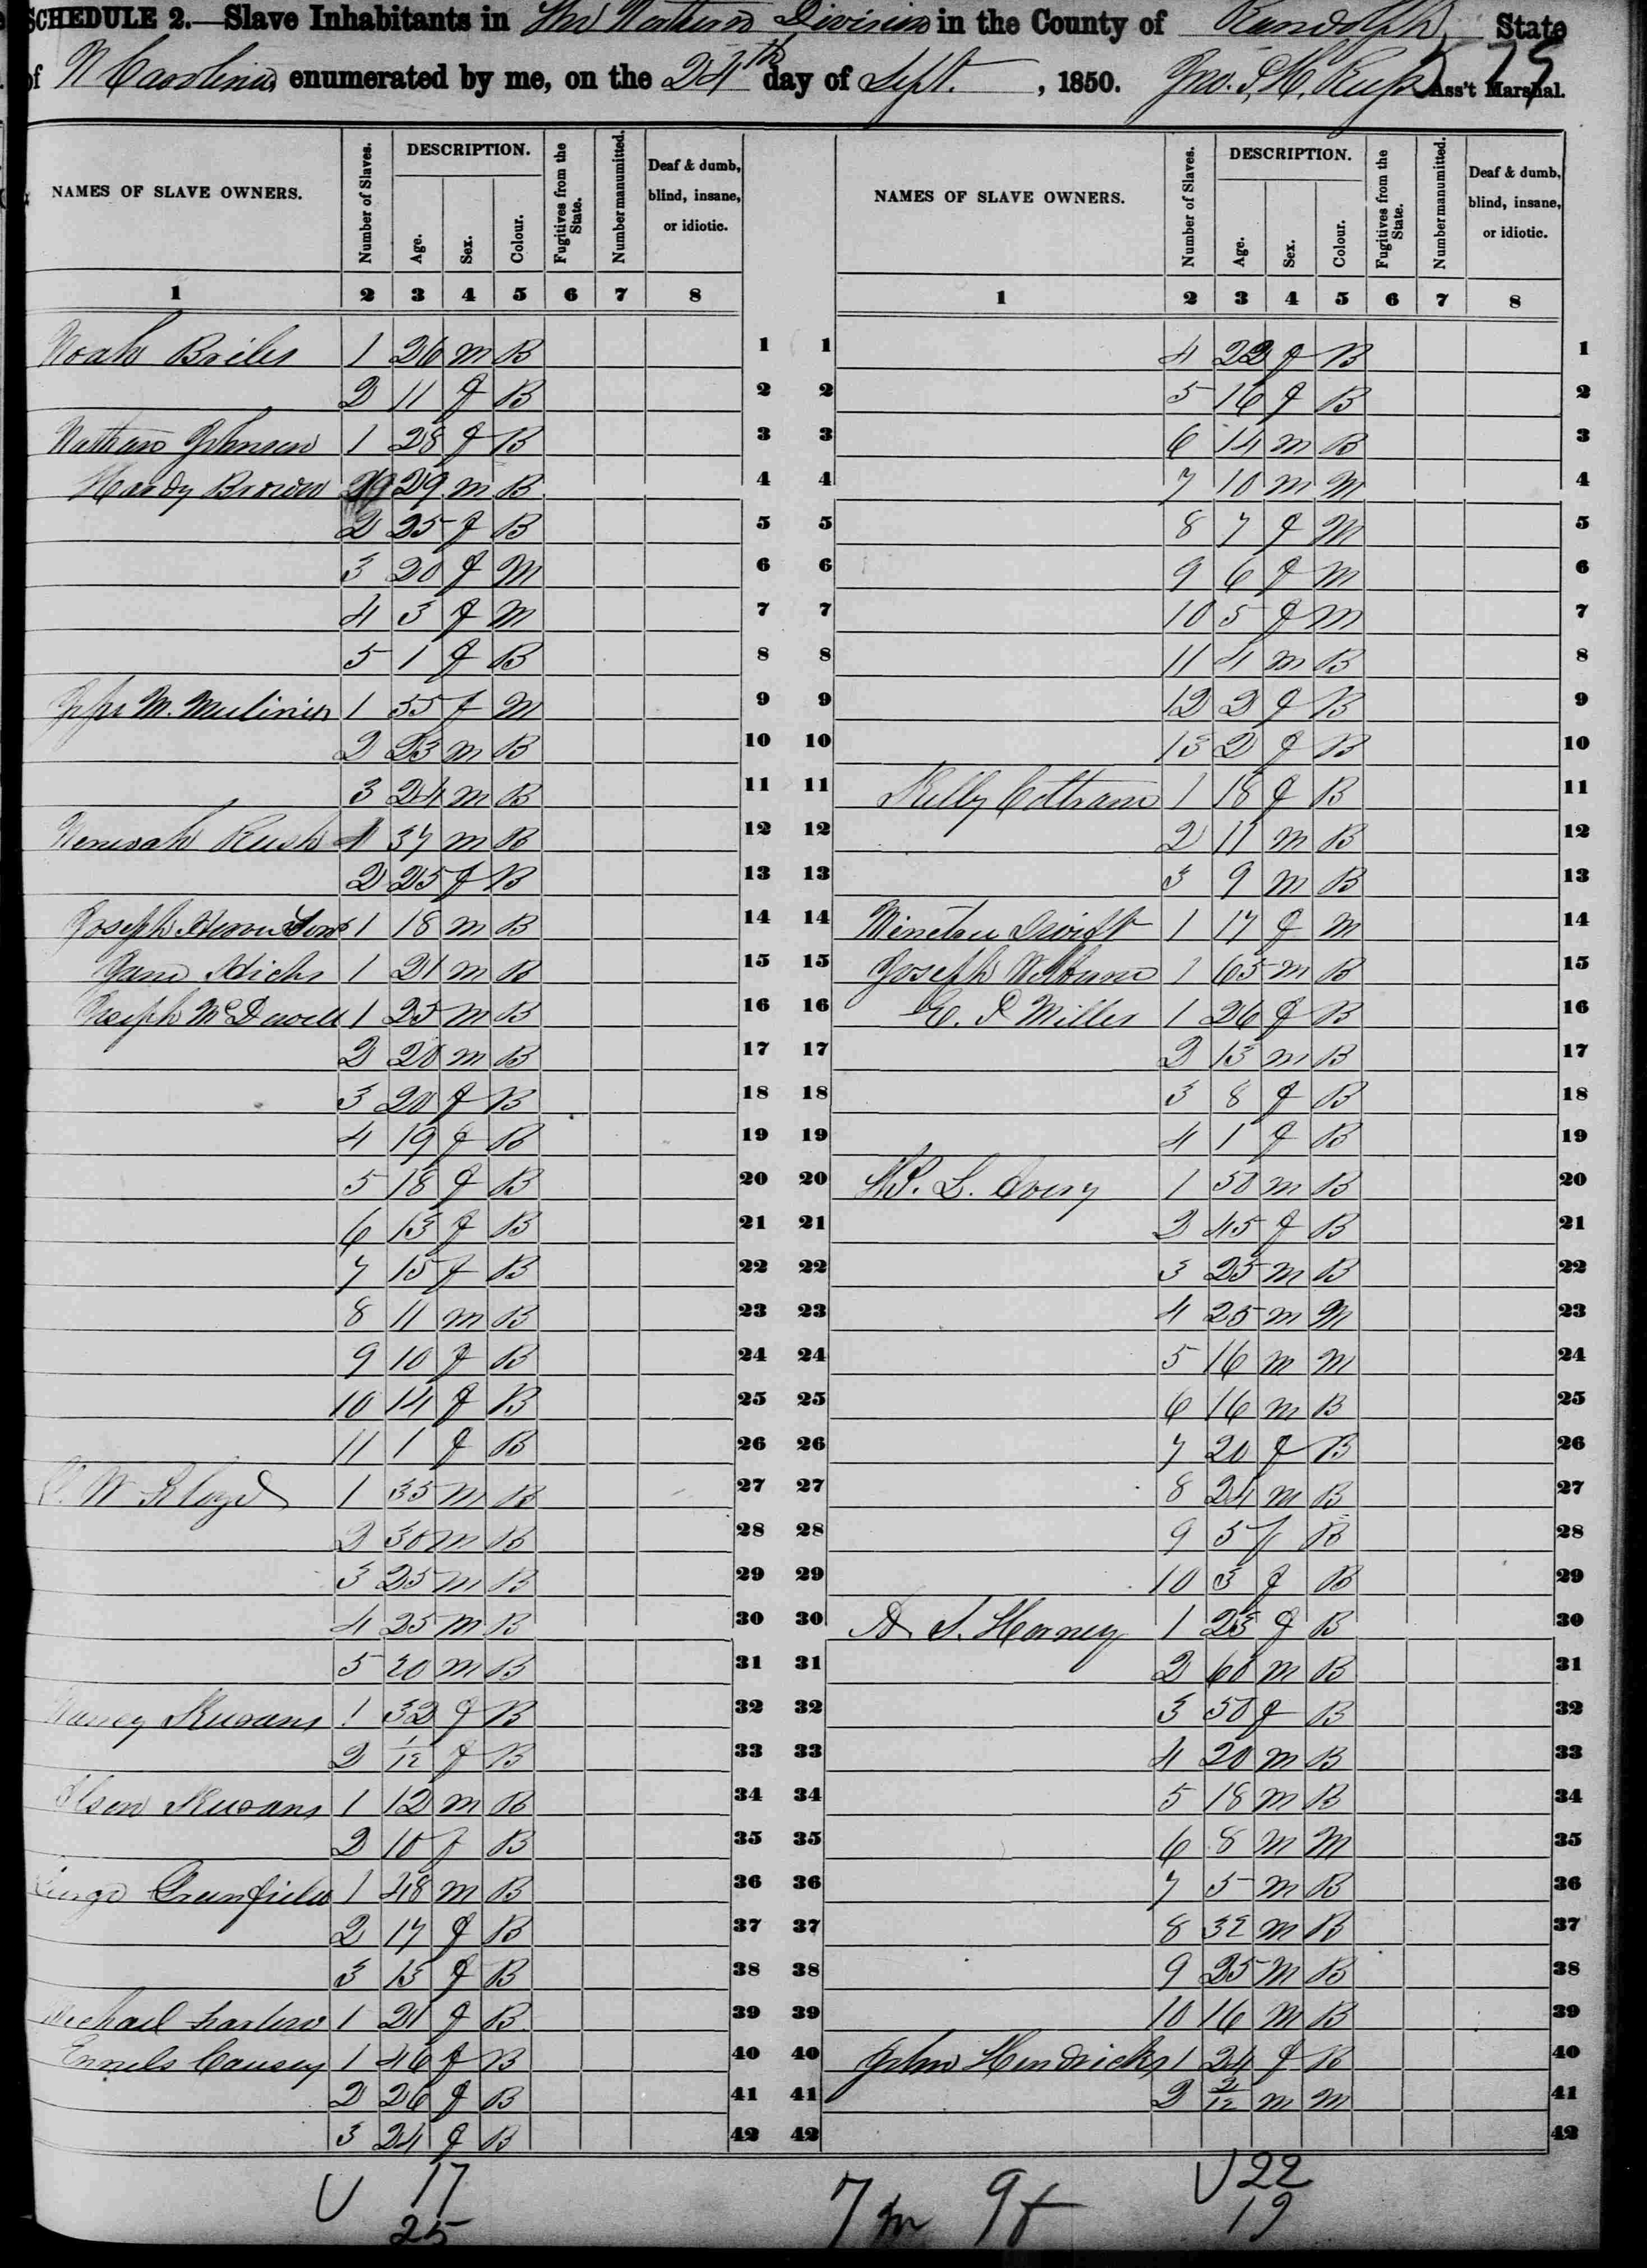 SCHEDULE 2.—Slave Inhabitants in the Northern Division in the County of Randolph State
of N Carolina enumerated by me, on the 24th day of Sept. , 1850. Jno. Ass't Marshal.
579
NAMES OF SLAVE OWNERS. Number of Slaves. DESCRIPTION. Age. Sex. Colour. Fugitives from the State. Number manumitted. Deaf & dumb, blind, insane, or idiotic.
1 2 3 4 5 6 7 8
Noah Briles 1 26 m B 1
2 11 f B 2
Nathan Johnson 1 28 f B 3
Hardy Brown 29 m B 4
2 25 f B 5
3 20 f M 6
4 3 f M 7
5 1 f B 8
M. 1 55 f M 9
2 23 m B 10
3 24 m B 11
Rush 1 37 m B 12
2 25 f B 13
Joseph 1 18 m B 14
Hicks 1 21 m B 15
Joseph McDowell 1 25 m B 16
2 20 m B 17
3 20 f B 18
4 19 f B 19
5 18 f B 20
6 13 f B 21
7 15 f B 22
8 11 m B 23
9 10 f B 24
10 14 f B 25
11 1 f B 26
W 1 35 m B 27
2 30 m B 28
3 25 m B 29
4 25 m B 30
5 20 m B 31
Nancy 1 32 f B 32
2 1/12 f B 33
1 12 m B 34
2 10 f B 35
Greenfield 1 48 m B 36
2 17 f B 37
3 13 f B 38
Michael 1 21 f B 39
Causey 1 46 f B 40
2 26 f B 41
3 24 f B 42
17
25
NAMES OF SLAVE OWNERS. Number of Slaves. DESCRIPTION. Age. Sex. Colour. Fugitives from the State. Number manumitted. Deaf & dumb, blind, insane, or idiotic.
1 2 3 4 5 6 7 8
1 4 22 f B 1
2 5 16 f B 2
3 6 14 m B 3
4 7 10 m M 4
5 8 7 f M 5
6 9 6 f M 6
7 10 5 f M 7
8 11 4 m B 8
9 12 2 f B 9
10 13 2 f B 10
11 Coltrane 1 18 f B 11
12 2 11 m B 12
13 3 9 m B 13
14 Swift 1 17 f M 14
15 Joseph Welborn 1 65 m B 15
16 Miller 1 26 f B 16
17 2 13 m B 17
18 3 8 f B 18
19 4 1 f B 19
20 L. 1 50 m B 20
21 2 45 f B 21
22 3 25 m B 22
23 4 25 m M 23
24 5 16 m M 24
25 6 16 m B 25
26 7 20 f B 26
27 8 24 m B 27
28 9 5 f B 28
29 10 3 f B 29
30 A. S. Horney 1 23 f B 30
31 2 60 m B 31
32 3 50 f B 32
33 4 20 m B 33
34 5 18 m B 34
35 6 8 m M 35
36 7 5 m B 36
37 8 32 m B 37
38 9 25 m B 38
39 10 16 m B 39
40 John Hendricks 1 24 f B 40
41 2 m M 41
42 42
7 m 9 f
22
19